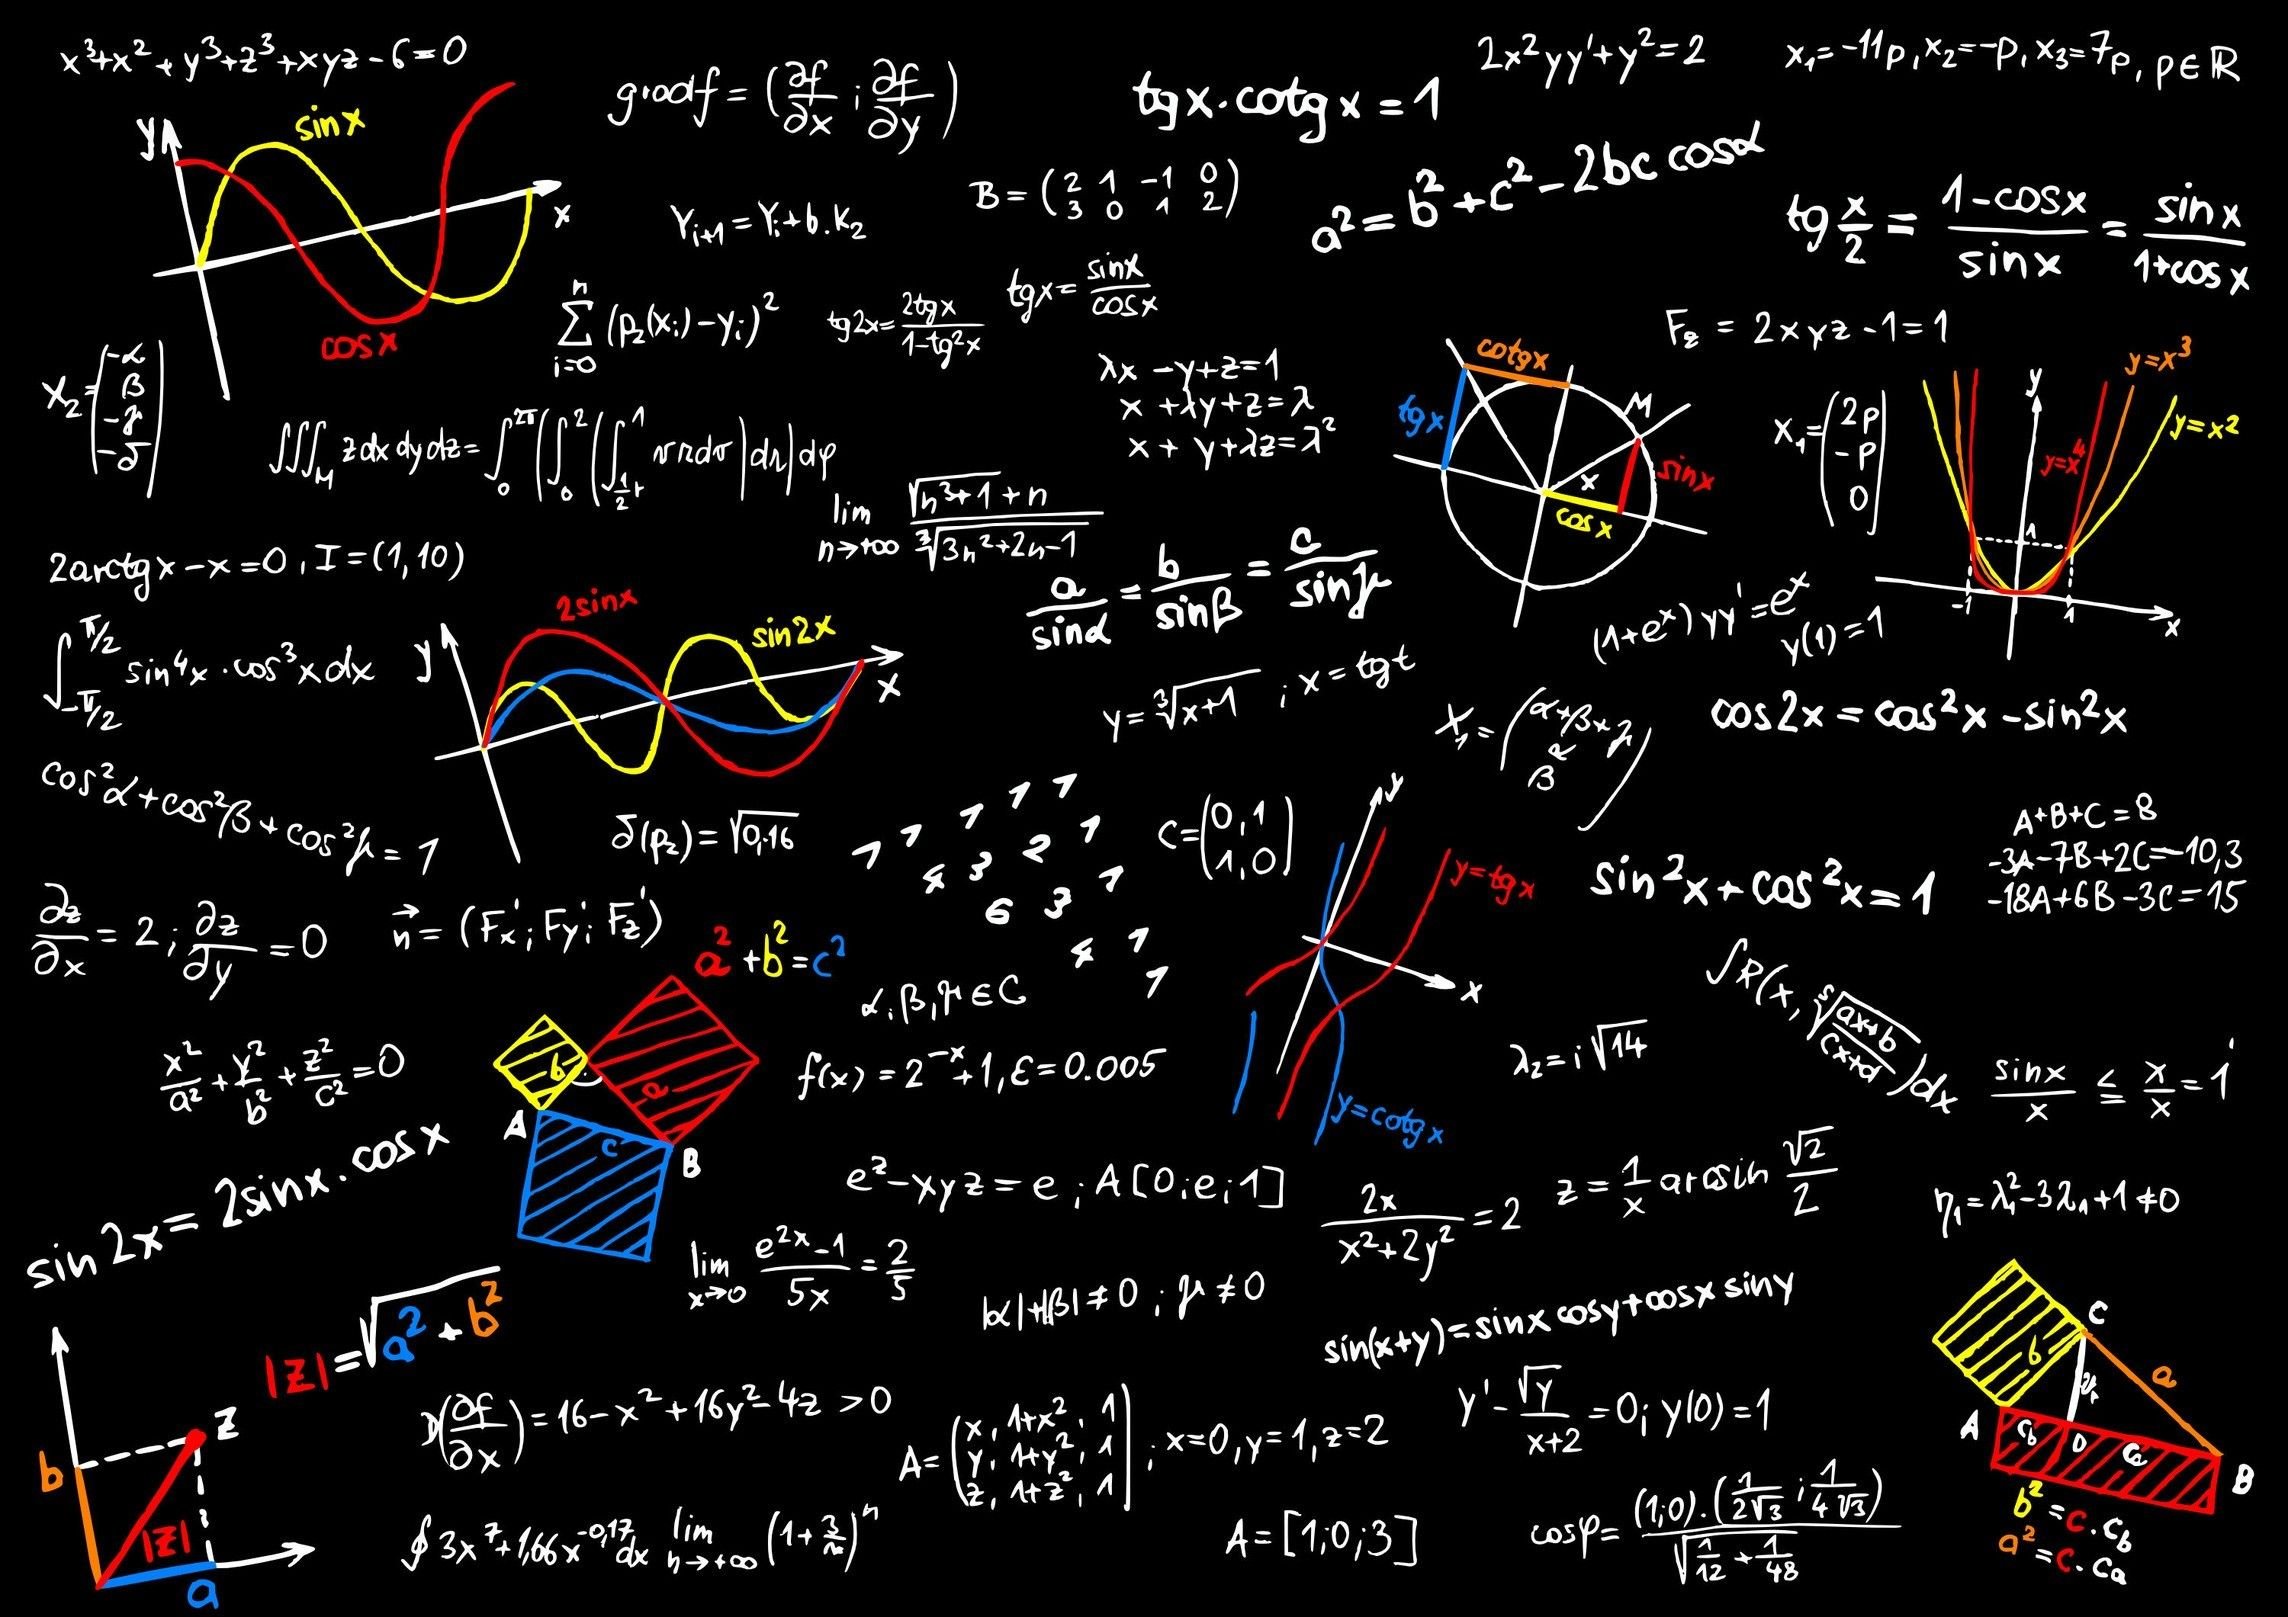 x³+x²+y³+z³+xyz-6=0
gradf = (∂f/∂x ; ∂f/∂y)
tgx·cotgx = 1
2x²yy'+y²=2
x₁=-11p, x₂=-p, x₃=7p, p∈ℝ
y
sinx
x
cosx
Yᵢ₊₁=Yᵢ+b.K₂
B = (2 1 -1 0
3 0 1 2)
a²=b²+c²-2bc cosα
tg x/2 = 1-cosx/sinx = sinx/1+cosx
∑ n i=0 (p₂(xᵢ)-yᵢ)²
tg2x = 2tgx/1-tg²x
tgx = sinx/cosx
F_z = 2xyz-1=1
X₂ = (-α
β
-γ
-δ)
λx -y+z=1
x +λy+z=λ
x + y+λz=λ²
cotgx
tgx
M
x
sinx
cosx
X₁ = (2p
-p
0)
y
y=x³
y=x²
y=x⁴
1
-1
1
x
∭_M zdxdydz = ∫₀^2π(∫₀²(∫_½r^1 vrdv)dr)dφ
lim n→+∞ √n³+1+n/∛3n²+2n-1
2arctgx-x=0, I=(1,10)
a/sinα = b/sinβ = c/sinγ
(1+eˣ)yy'=eˣ
y(1)=1
∫ π/2 -π/2 sin⁴x·cos³xdx
y
2sinx
sin2x
x
y=∛x+1 ; x=tgt
X₁ = (α+β+γ
α
β)
cos2x = cos²x-sin²x
cos²α+cos²β+cos²γ=1
δ(p₂)=√0,16
1 1 1 1 1
4 3 2 1
6 3 1
4 1
1
C=(0,1
1,0)
y
y=tgx
x
y=cotgx
sin²x+cos²x=1
A+B+C=8
-3A-7B+2C=-10,3
-18A+6B-3C=15
∂z/∂x = 2 ; ∂z/∂y = 0
n⃗=(Fx';Fy;Fz')
a²+b²=c²
b
a
c
A
B
α,β,γ∈C
f(x)=2⁻ˣ+1, ε=0.005
λ₂=i√14
∫R(x, ⁵√ax+b/cx+d)dx
sinx/x ≤ x/x = 1
x²/a²+y²/b²+z²/c²=0
sin2x=2sinx·cosx
e^z-xyz=e ; A[0;e;1]
2x/x²+2y²=2
z=1/x arcsin √2/2
η₁=λ₁²-3λ₁+1≠0
lim x→0 e²ˣ-1/5x=2/5
|α|+|β|≠0 ; γ≠0
sin(x+y)=sinx cosy+cosx siny
|z|=√a²+b²
b
z
|z|
a
D(∂f/∂x)=16-x²+16y²-4z >0
A=(x, 1+x², 1
y, 1+y², 1
z, 1+z², 1) ; x=0, y=1, z=2
y'-√y/x+2=0; y(0)=1
C
b
a
v
A
c_b
D
c_a
B
b²=c·c_b
a²=c·c_a
∮3x⁷+1,66x^-0,17dx
lim n→+∞ (1+3/n)ⁿ
A=[1;0;3]
cosφ=(1;0)·(1/2√3 ; 1/4√3)/√1/12+1/48